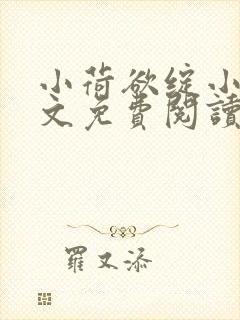 小荷欲綻小
文免費閱讀
羅又添